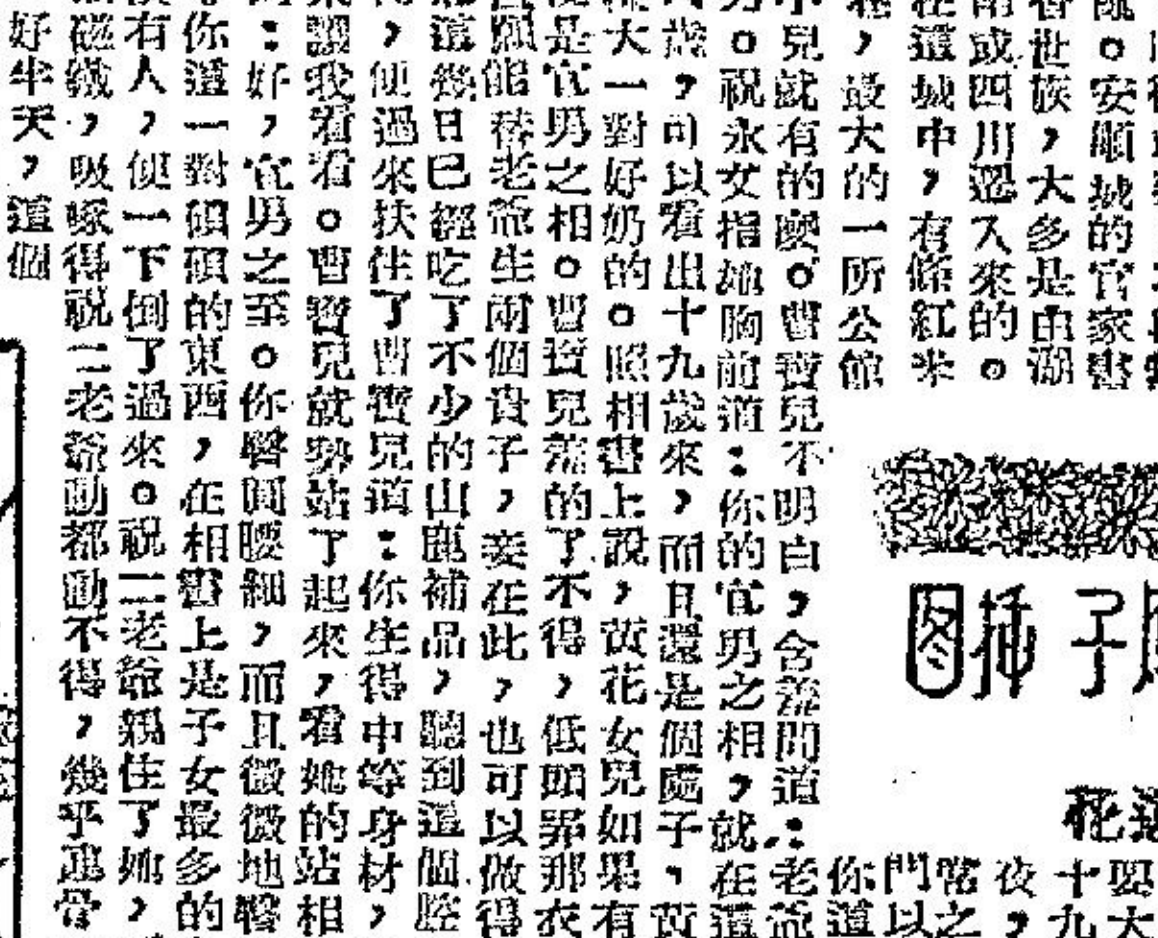 安順城的官家書
香世族，大多是由湖
或四川遷入來的。
在這城中，有條紅米
，最大的一所公館
兒就有的麼。曹寶兒不明白，含羞問道：老爺
。祝永女指她胸前道：你的宜男之相，就在這
歲，可以看出十九歲來，而且還是個處子，黃
大一對好奶的。照相書上說，黃花女兒如果有
是宜男之相。曹寶兒羞的了不得，低頭弄那衣
能替老爺生兩個貴子，妾在此，也可以做得
這幾日已經吃了不少的山龐補品，聽到這個腔
，便過來扶住了曹寶兒道：你生得中等身材，
讓我看看。曹寶兒就勢站了起來，看她的站相
：好，宜男之至。你臀圓腰細，而且微微地臀
你這一對碩碩的東西，在相書上是子女最多的
有人，便一下倒了過來。祝二老爺親住了她，
磁鐵，吸啄得祝二老爺動都動不得，幾乎連骨
好半天，這個
子插图
花
大
十九
夜，
常之
門以
你道